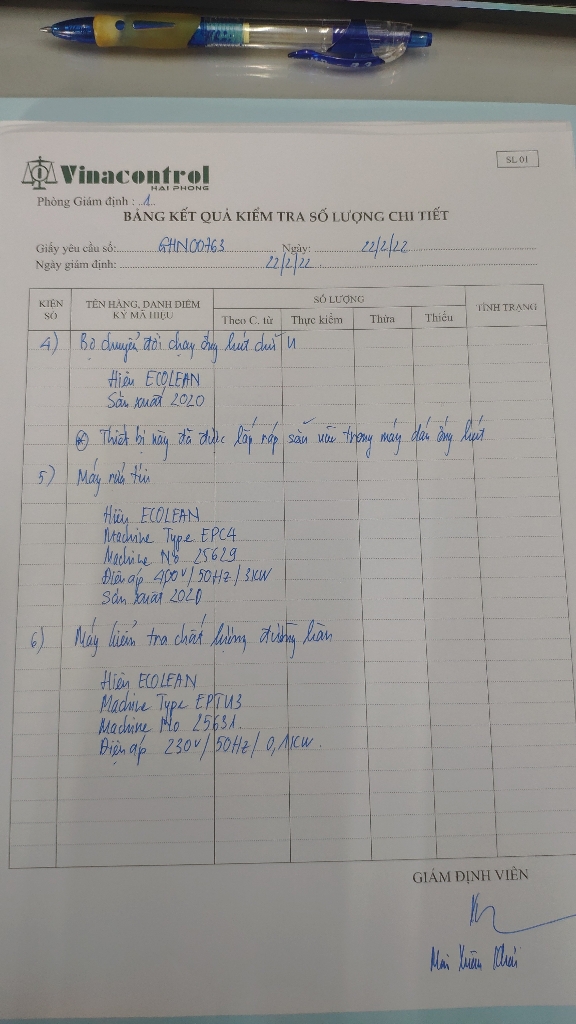 SL 01
Vinacontrol
HAI PHONG
Phòng Giám định : 1
BẢNG KẾT QUẢ KIỂM TRA SỐ LƯỢNG CHI TIẾT
Giấy yêu cầu số: GHN00763 Ngày: 22/2/22
Ngày giám định: 22/2/22
KIỆN SỐ
TÊN HÀNG, DANH ĐIỂM KÝ MÃ HIỆU
SỐ LƯỢNG
TÌNH TRẠNG
Theo C. từ Thực kiểm Thừa Thiếu
4) Bộ chuyển đổi chạy ống hút chữ U
Hiệu ECOLEAN
Sản xuất 2020
* Thiết bị này đã được lắp ráp sẵn vào trong máy dán ống hút
5) Máy rửa túi
Hiệu ECOLEAN
Machine Type EPC4
Machine No 25629
Điện áp 400V/50Hz/3KW
Sản xuất 2020
6) Máy kiểm tra chất lượng đường hàn
Hiệu ECOLEAN
Machine Type EPTU3
Machine No 25631
Điện áp 230V/50Hz/0,1KW.
GIÁM ĐỊNH VIÊN
Mai Xuân Khải